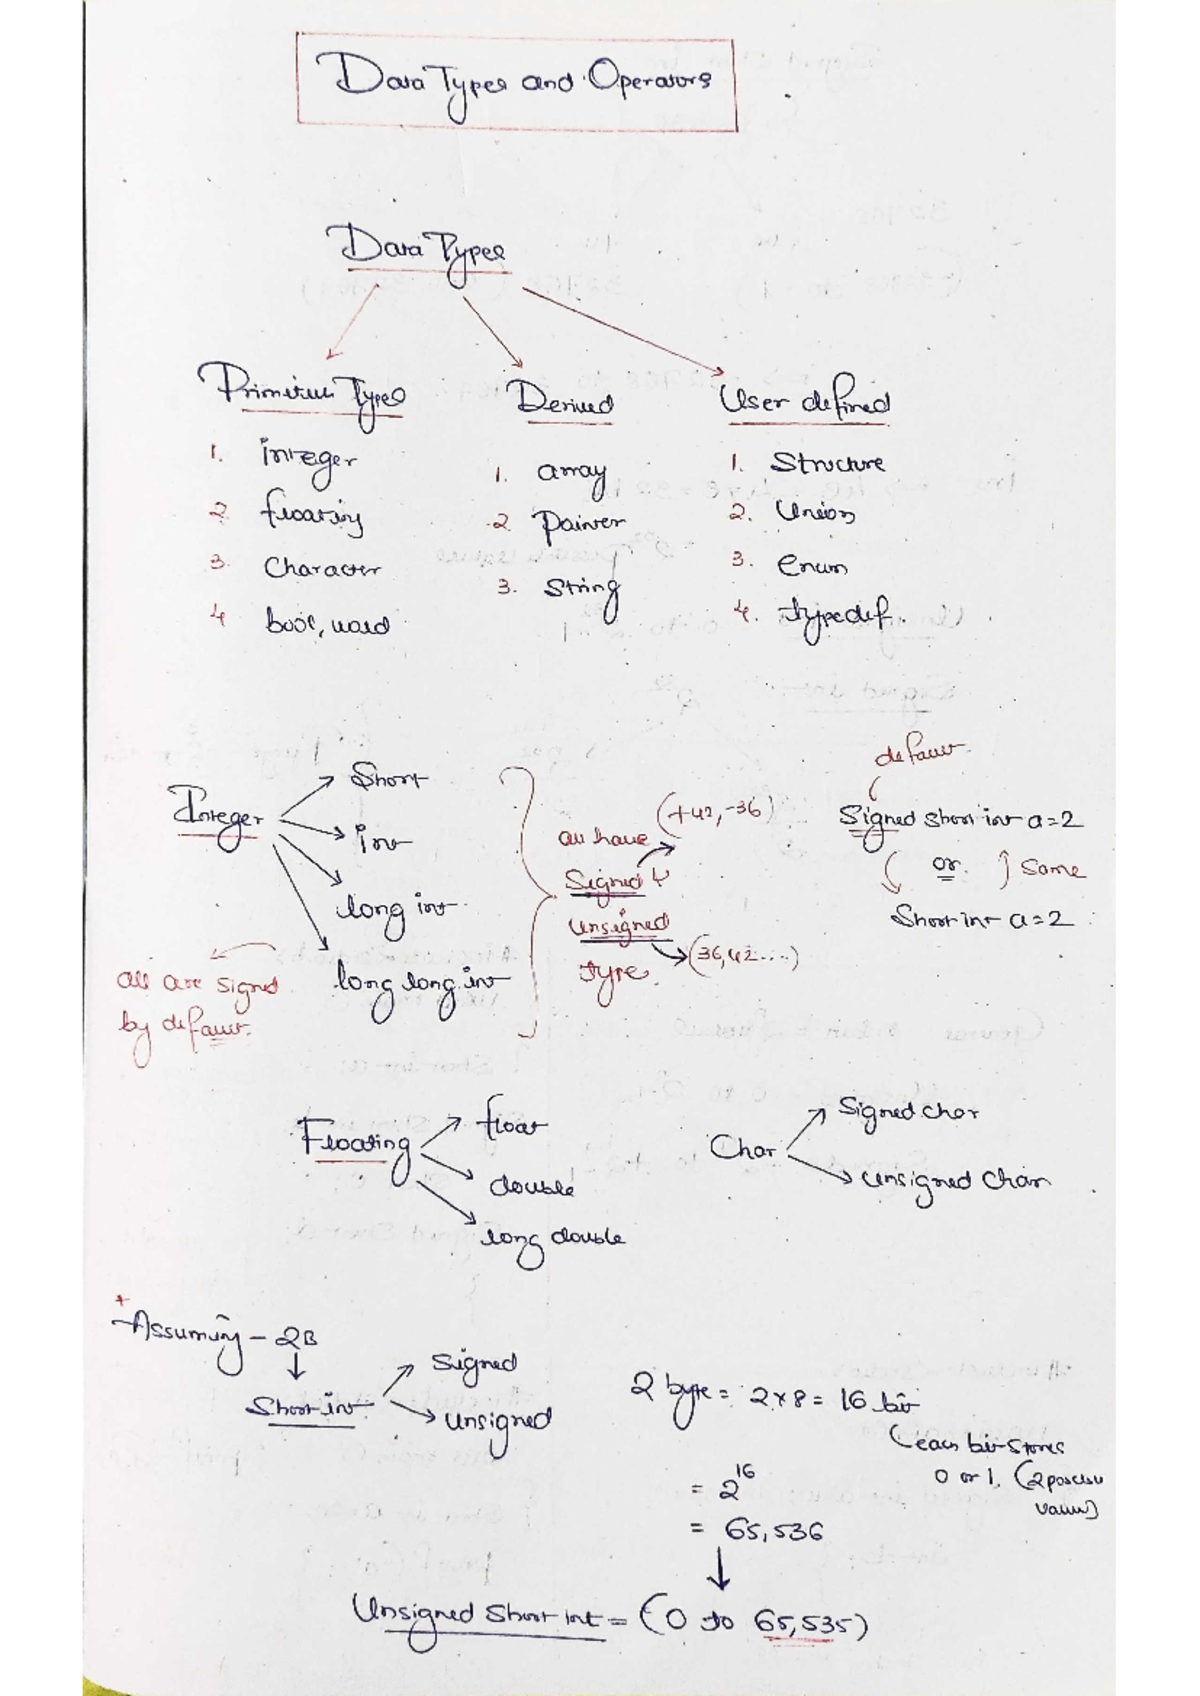 Data Types and Operators
Data Types
Primitive Types
1. integer
2. floating
3. Character
4. bool, void
Derived
1. array
2. Pointer
3. String
User defined
1. Structure
2. Union
3. enum
4. typedef.
Integer
Short
int
long int
long long int
all are signed
by default.
all have
Signed &
unsigned
type.
(+42, -36)
(36,42.....)
default
Signed short int a=2
or Same
Short int a=2
Floating
float
double
long double
Char
Signed char
unsigned char
Assuming - 2B
Short int
Signed
unsigned
2 byte = 2x8 = 16 bit
each bit stores
0 or 1. (2 possible
values)
= 2^16
= 65,536
Unsigned Short int = (0 to 65,535)